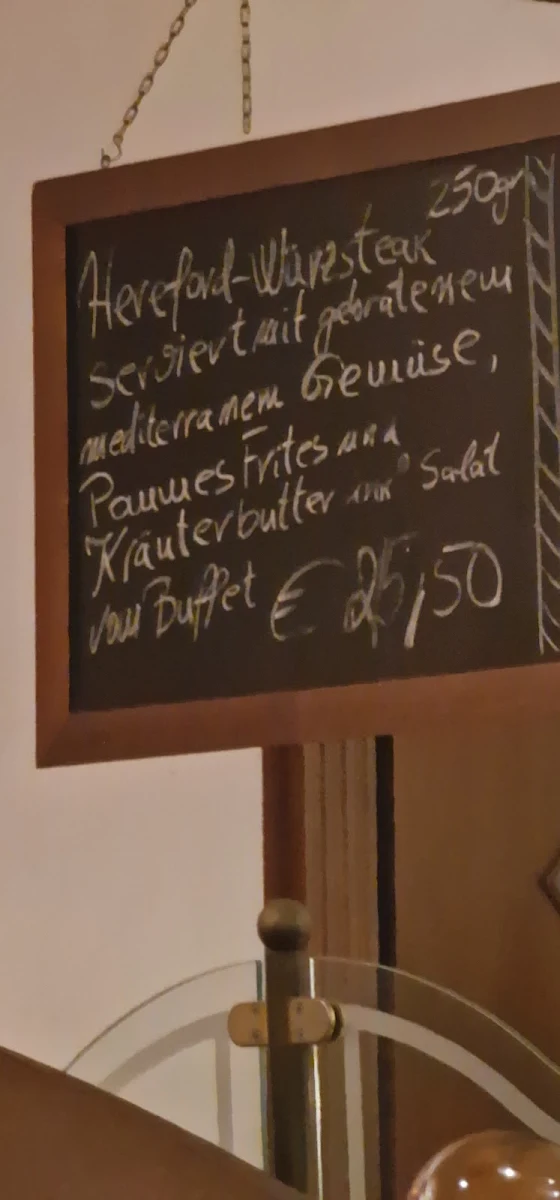 250gr
Hereford-Würzsteak
serviert mit gebratenem
mediterranem Gemüse,
Pommes Frites und
Kräuterbutter und Salat
vom Buffet € 25,50